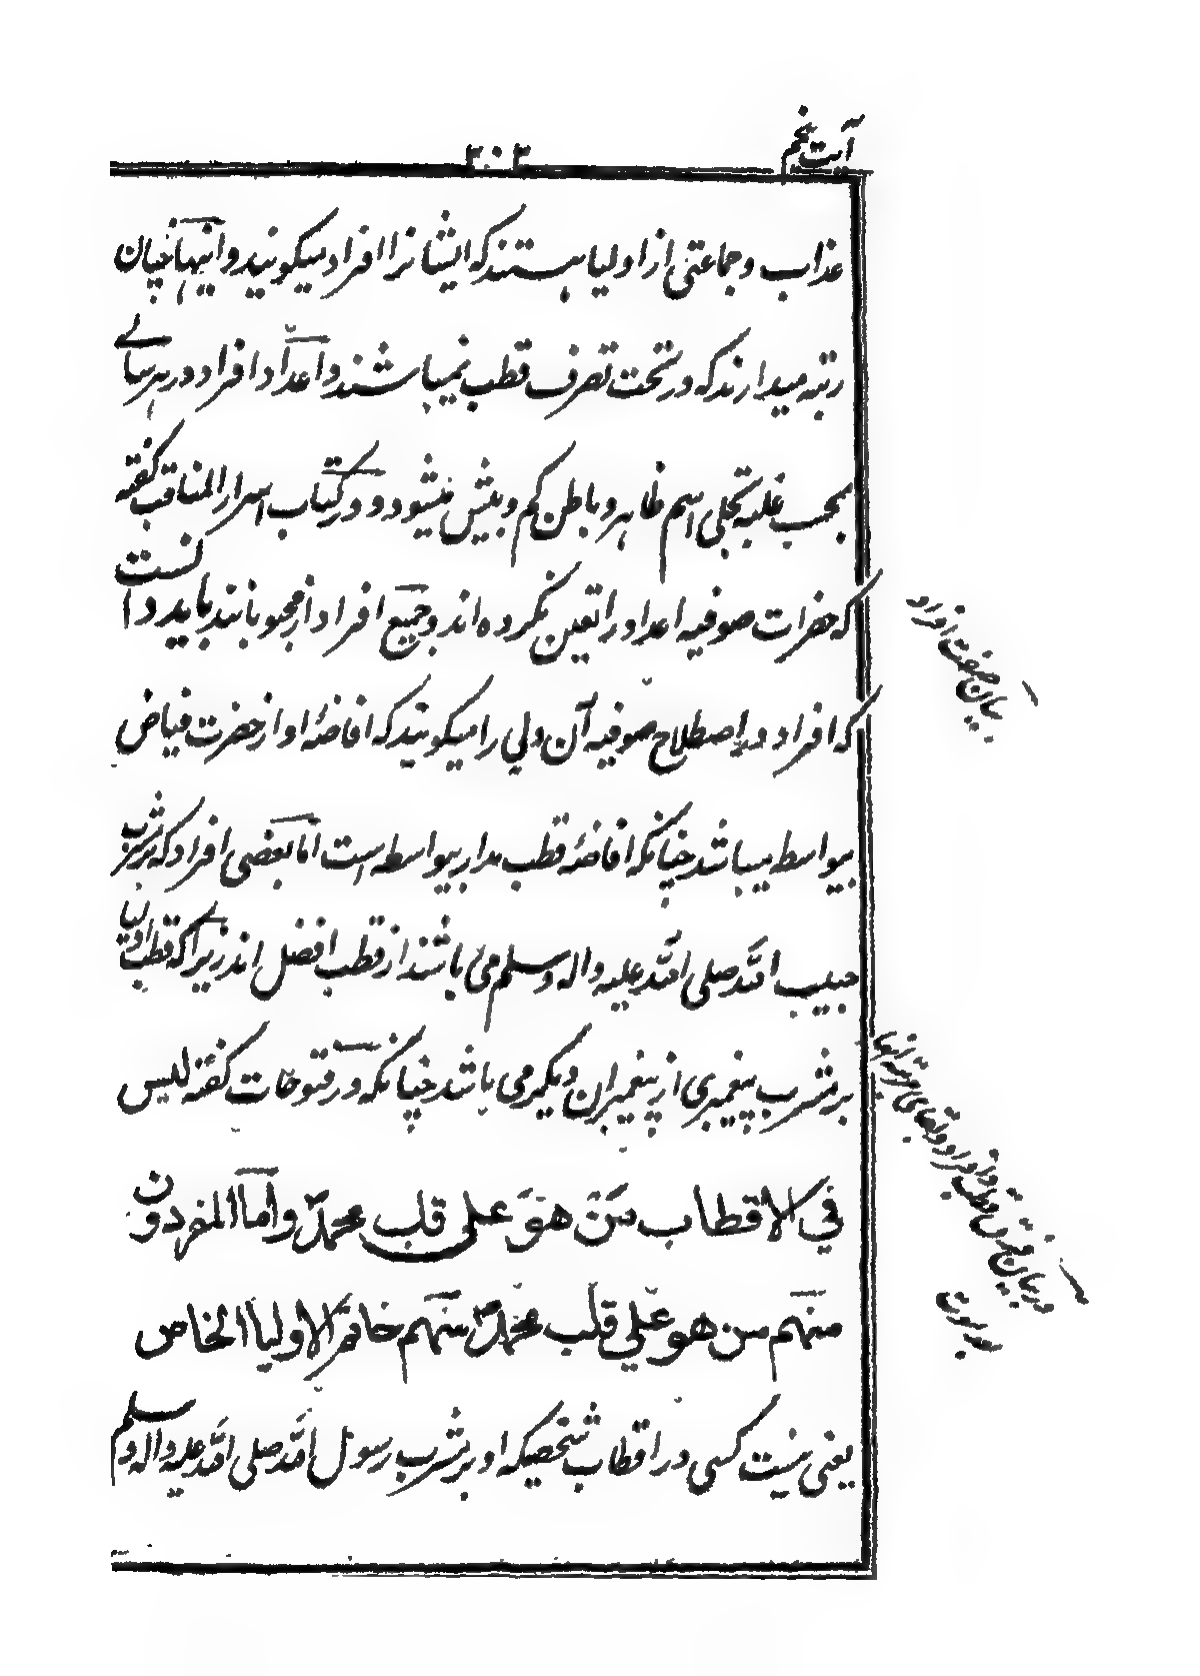 آیت پنجم
۳۰۳
عذاب وجماعتی از اولیا هستند که ایشانرا افراد میگویند و اینها چنان
رتبه میدارند که در تحت تصرف قطب نمیباشند و اعداد افراد در هر سالے
بحسب غلبه تجلی اسم ظاهر و باطن کم و بیش میشود و در کتاب اسرار المناقب گفته
که حضرات صوفیه اعداد را تعین نکرده اند و جمیع افراد از محبوبانند باید دانست
که افراد در اصطلاح صوفیه آن ولی را میگویند که افاضهٔ او از حضرت فیاض
بیواسطه میباشد چنانکه افاضهٔ قطب مدار بیواسطه است اما بعضی افراد که بر مشرب
حبیب الله صلی الله علیه واله وسلم می باشند از قطب افضل اند زیرا که قطب اولیا
بر مشرب پیغمبری از پیغمبران دیگر می باشد چنانکه در فتوحات گفته لیس
في الاقطاب من هو علی قلب محمد واما المفردون
منهم من هو علي قلب محمد منهم خاتم الاولیا الخاص
یعنی نیست کسی در اقطاب شخصیکه او بر مشرب رسول الله صلی الله علیه واله وسلم
بیان صفت افراد
در بیان فرق قطب و افراد